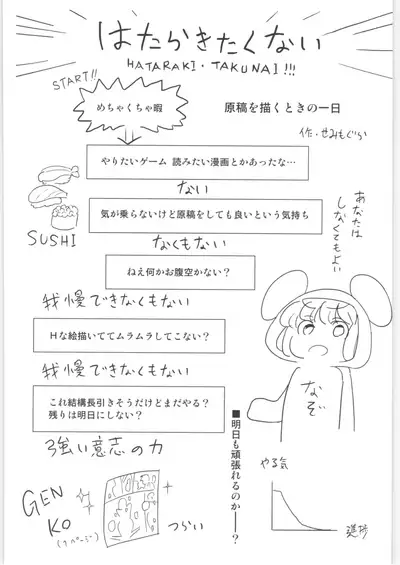 はたらきたくない
HATARAKI・TAKUNAI!!!
START!!
めちゃくちゃ暇
原稿を描くときの一日
作・せみもぐら
やりたいゲーム 読みたい漫画とかあったな…
ない
気が乗らないけど原稿をしても良いという気持ち
SUSHI
なくもない
ねえ何かお腹空かない？
あなたは
しなくてもよい
我慢できなくもない
Hな絵描いててムラムラしてこない？
我慢できなくもない
なぞ
これ結構長引きそうだけどまだやる？
残りは明日にしない？
強い意志の力
■明日も頑張れるのか――？
やる気
進捗
GEN
KO
(1ページ)
つらい